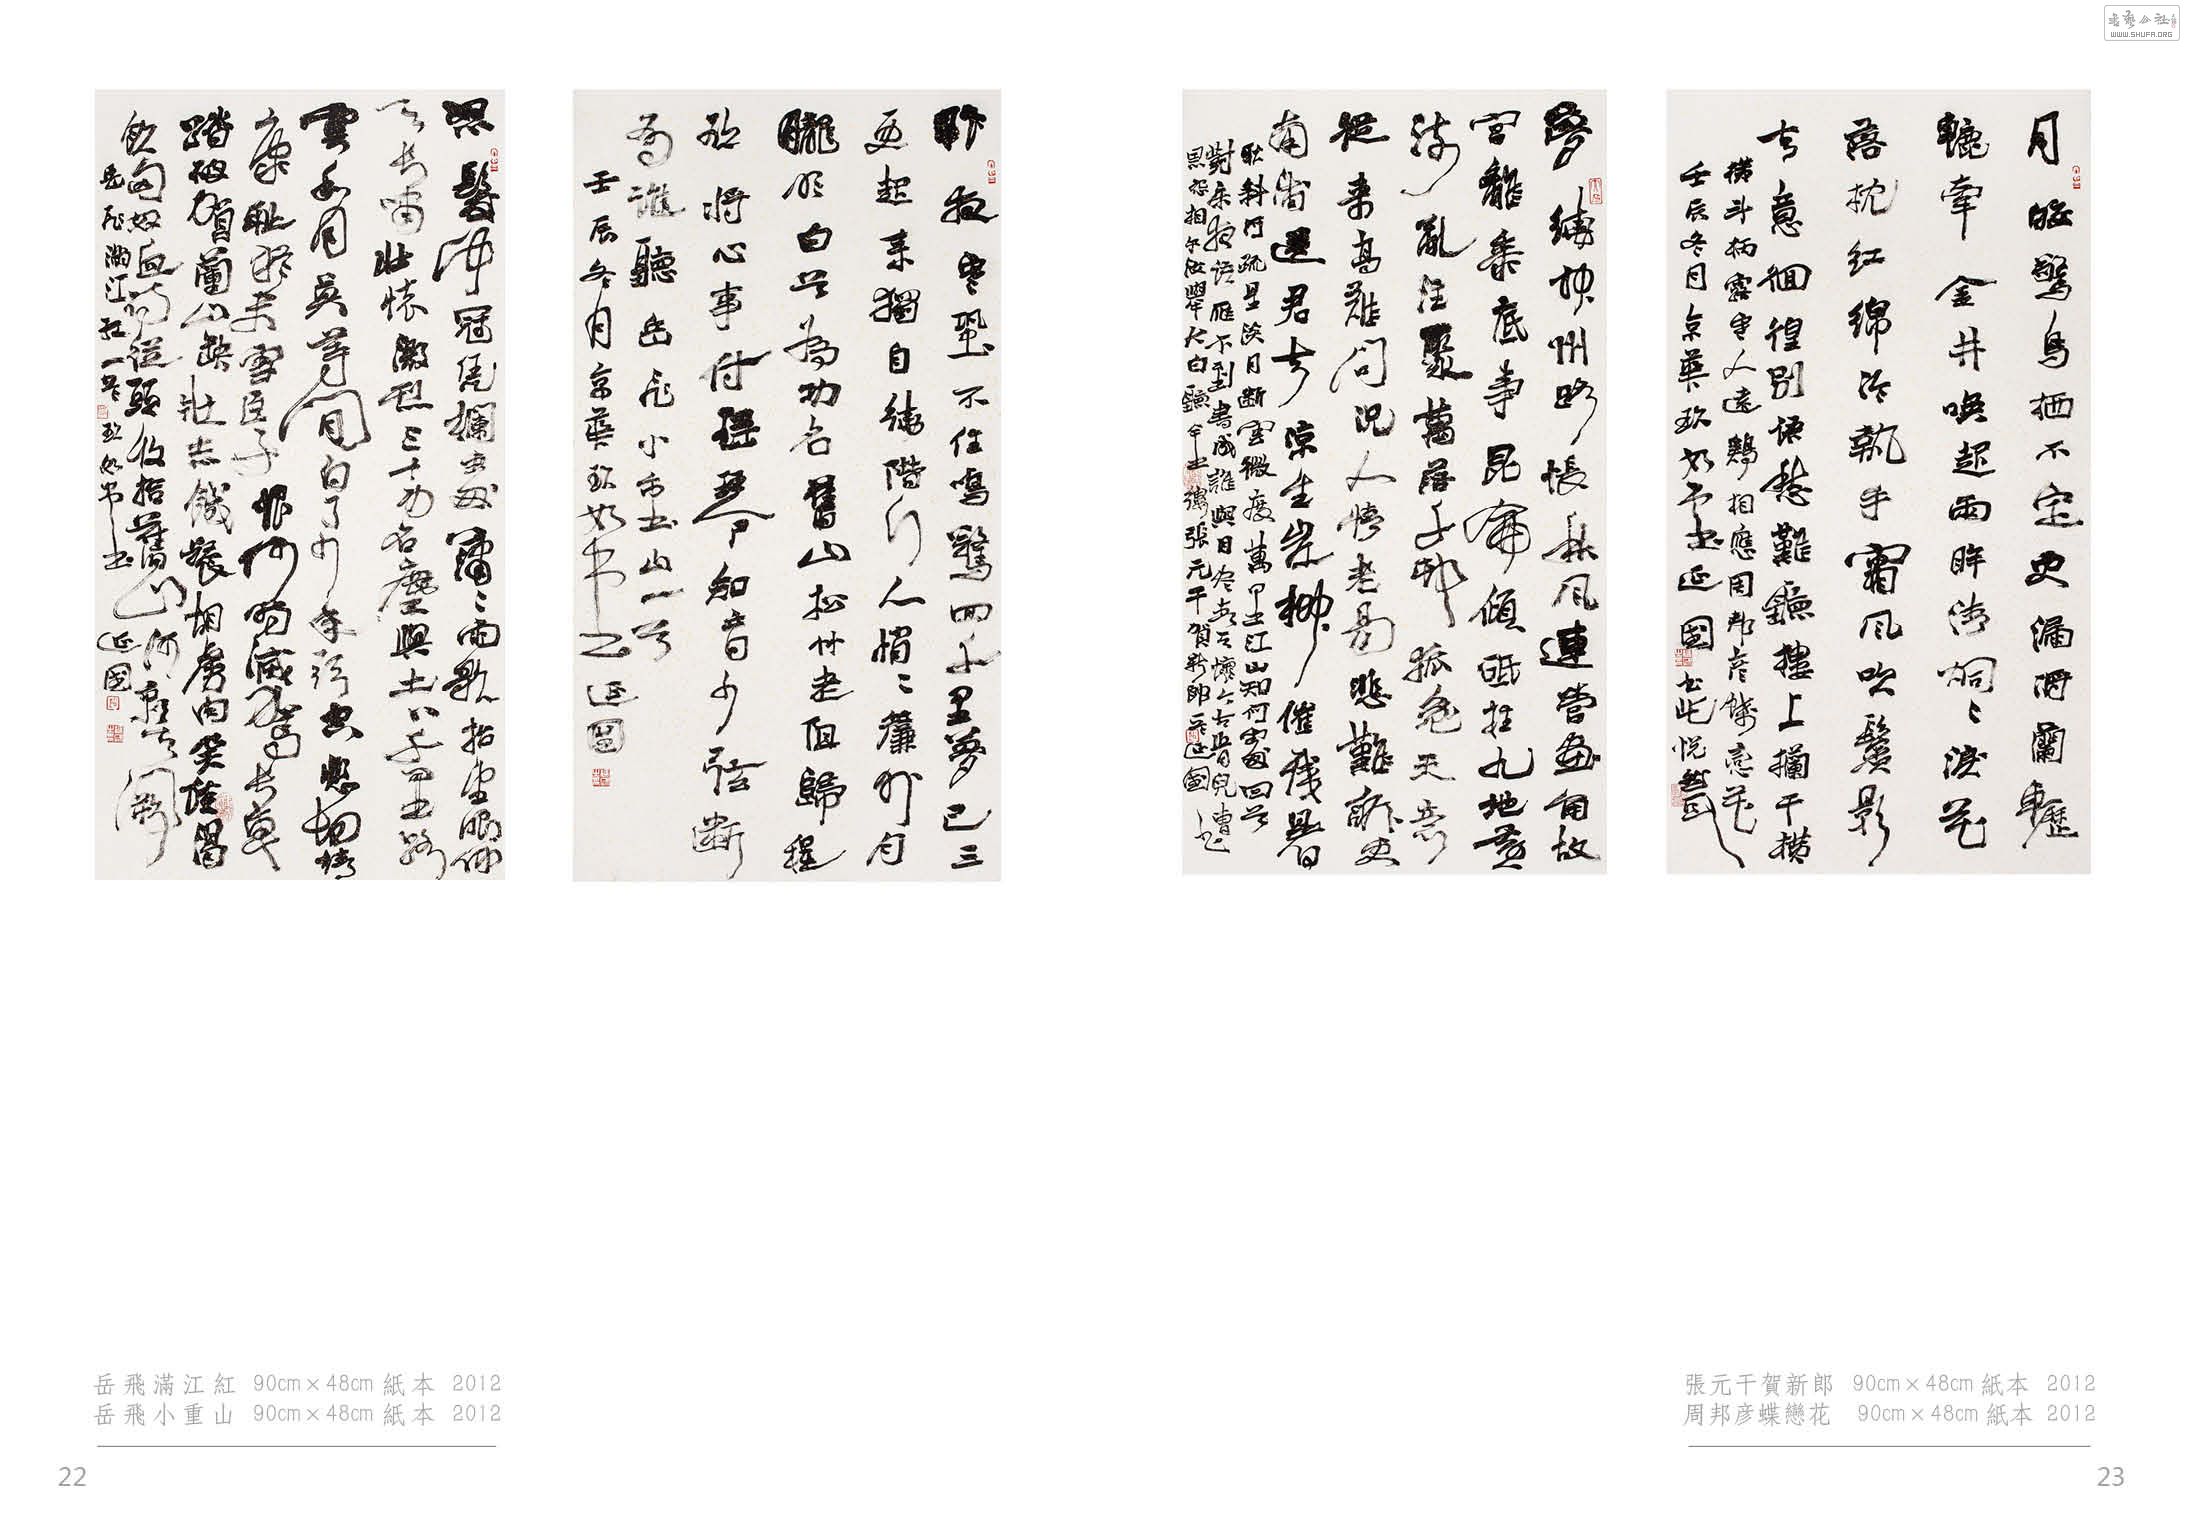 書藝公社
WWW.SHUFA.ORG
怒髮沖冠憑欄處瀟ミ雨歇抬望眼仰
天長嘯壯懷激烈三十功名塵與土八千里路
雲和月莫等閒白了少年頭空悲切靖
康恥猶未雪臣子恨何時滅駕長車
踏破賀蘭山缺壯志饑餐胡虜肉笑談渴
飲匈奴血待從頭收拾舊山河朝天闕
岳飛滿江紅一首 玖如書延國
昨夜寒蛩不住鳴驚回千里夢已三
更起來獨自繞階行人悄ミ簾外月
朧明白首為功名舊山松竹老阻歸程
欲將心事付瑤琴知音少弦斷
有誰聽岳飛小重山一首
壬辰冬月京華玖如書延國
夢繞神州路悵秋風連營畫角故
宮離黍底事昆侖傾砥柱九地黃
流亂注聚萬落千村狐兔天意
從來高難問況人情老易悲難訴更
南浦送君去涼生岸柳催殘暑
耿斜河疏星淡月斷雲微度萬里江山知何處回首
對床夜語雁不到書成誰與目盡青天懷今古肯兒曹
恩怨相爾汝舉大白聽金縷張元干賀新郎一首延國書
月皎驚烏栖不定更漏將闌轣
轆牽金井喚起兩眸清炯ミ淚花
落枕紅綿冷執手霜風吹鬢影
去意徊徨別語愁難聽樓上攔干橫
橫斗柄露寒人遠鷄相應周邦彥蝶戀花
壬辰冬月京華玖如書延國
岳飛滿江紅 90cm×48cm 紙本 2012
岳飛小重山 90cm×48cm 紙本 2012
22
張元干賀新郎 90cm×48cm 紙本 2012
周邦彥蝶戀花 90cm×48cm 紙本 2012
23